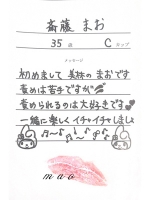 斎藤 まお
35 歳 C カップ
メッセージ
初めまして 美株の まおです
責めは苦手ですが
責められるのは大好きです
一緒に楽しくイチャイチャしましょ
mao